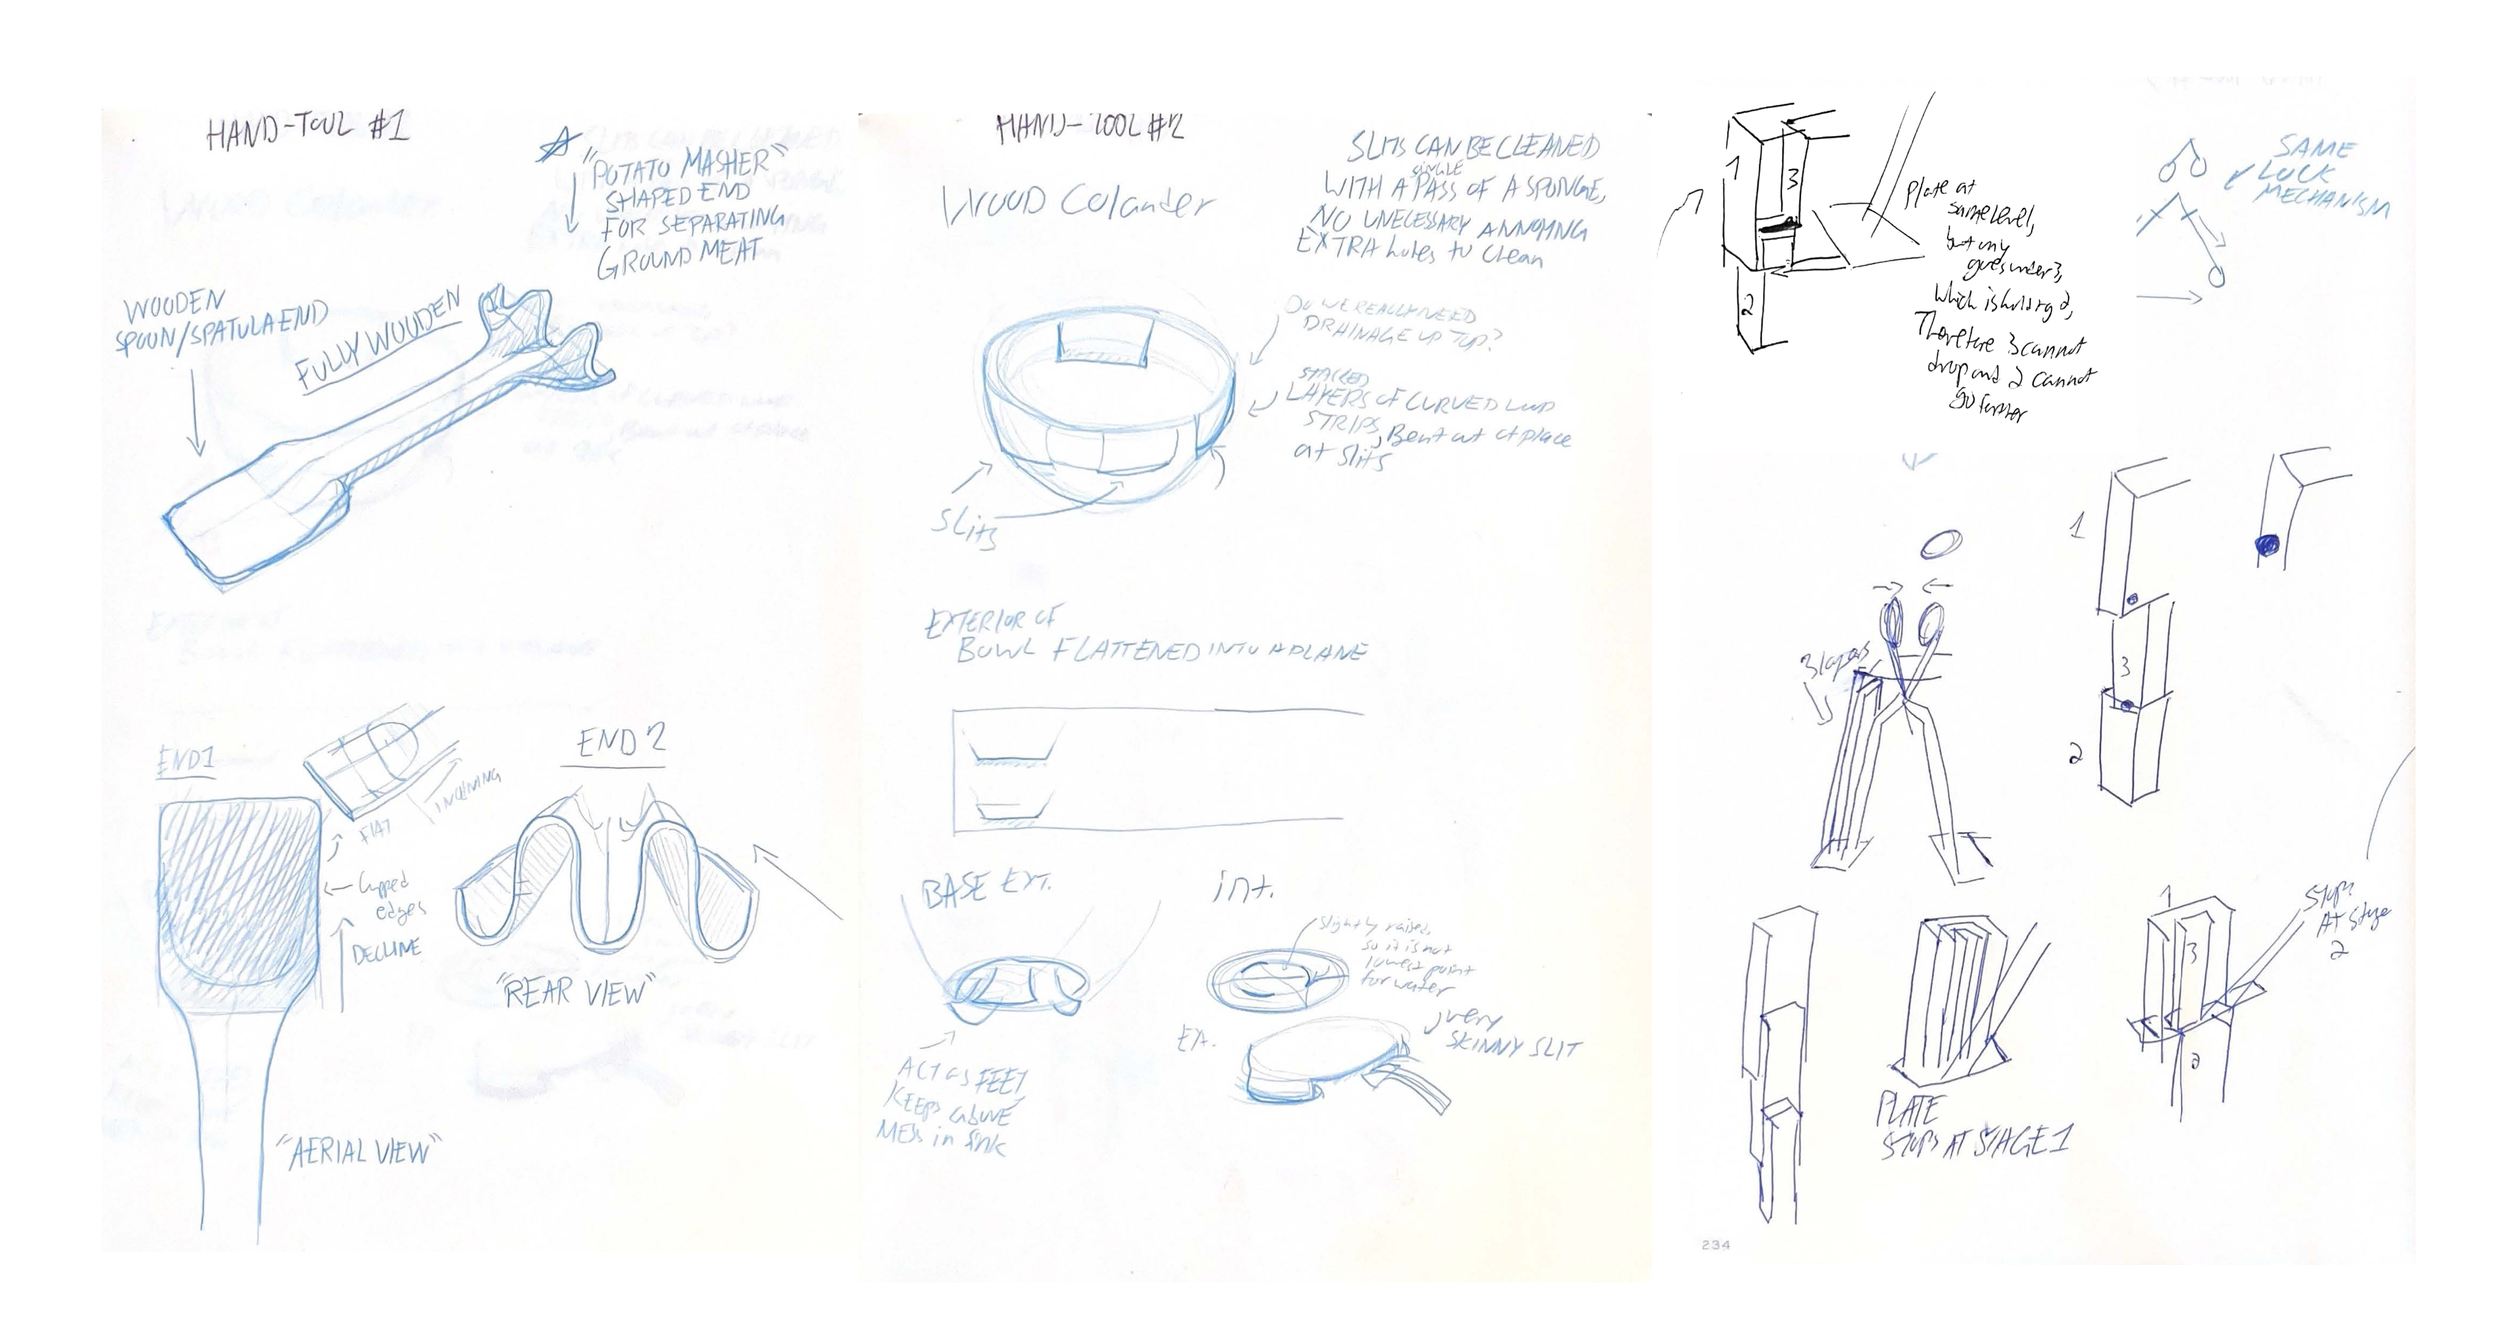 HAND-TOOL #1
"POTATO MASHER"
SHAPED END
FOR SEPARATING
GROUND MEAT
WOODEN
SPOON/SPATULA END
FULLY WOODEN
END 1
FLAT
INCLINING
Cupped
edges
DECLINE
"AERIAL VIEW"
END 2
"REAR VIEW"
HAND-TOOL #2
WOOD Colander
SLITS CAN BE CLEANED
SINGLE
WITH A PASS OF A SPONGE,
NO UNECESSARY ANNOYING
EXTRA holes to Clean
DO WE REALLY NEED
DRAINAGE UP TOP?
STACKED
LAYERS OF CURVED WOOD
STRIPS, Bent out of place
at Slits
Slits
EXTERIOR OF
BOWL FLATTENED INTO A PLANE
BASE EXT.
ACT as FEET
KEEPS above
MESS in Sink
int.
Slightly raised,
so it is not
lowest point
for water
EX.
very
SKINNY SLIT
1
3
2
Plate at
same level,
but only
goes under 3,
which is holding 2,
Therefore 3 cannot
drop and 2 cannot
go further
SAME
LOCK
MECHANISM
3 layers
1
3
2
PLATE
STOPS AT STAGE 1
1
3
2
Stops
At Stage
2
234